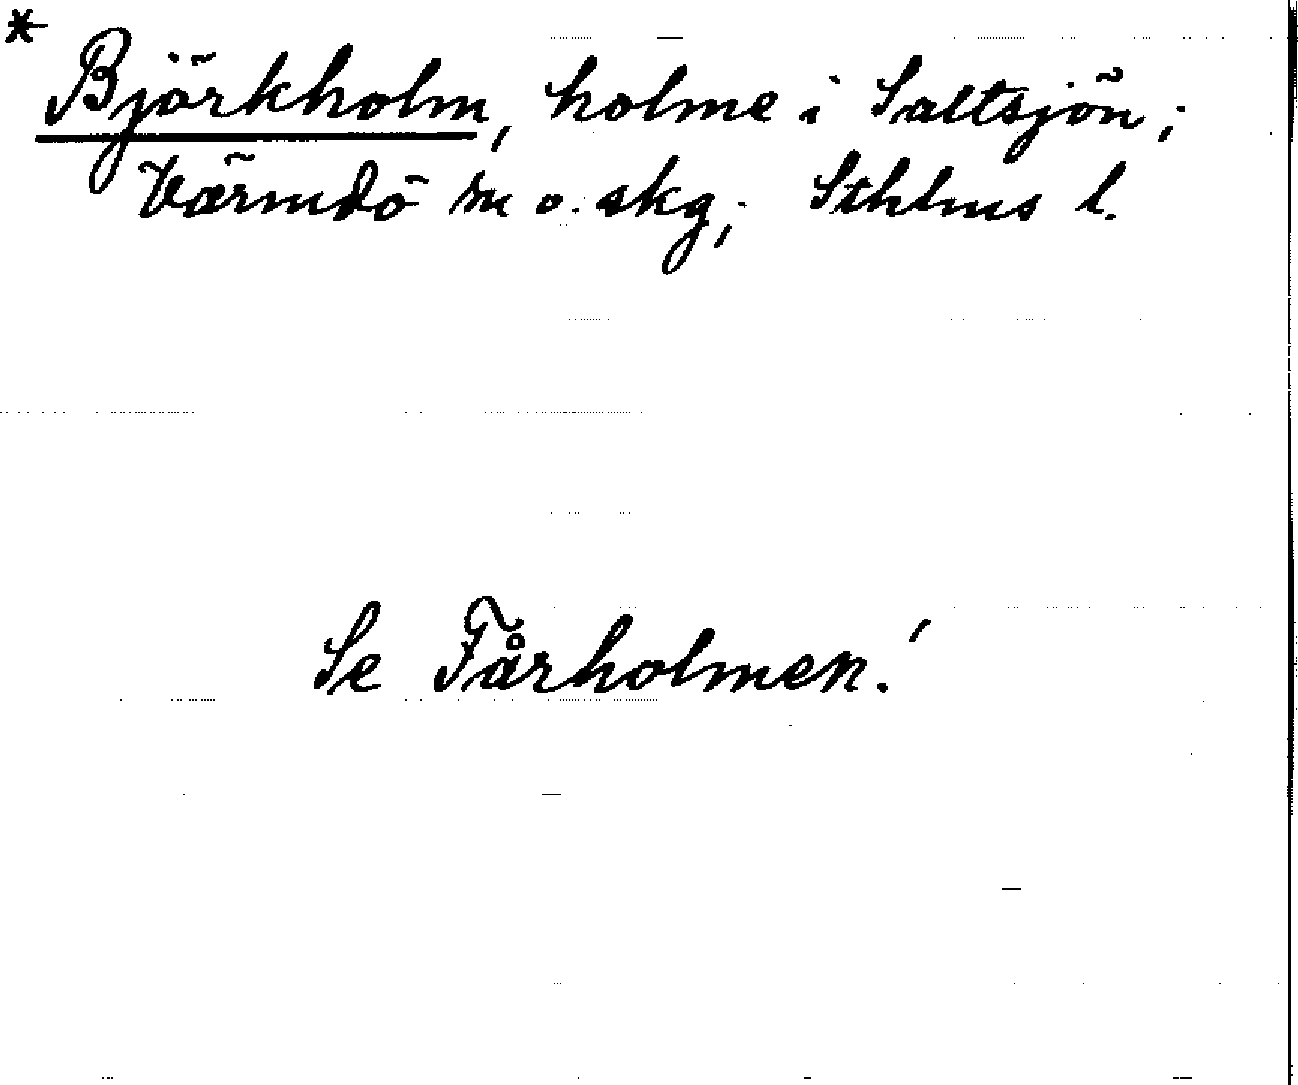 * Björkholm, holme i Saltsjön;
Värmdö sn o. skg; Sthlms l.
Se Fårholmen!